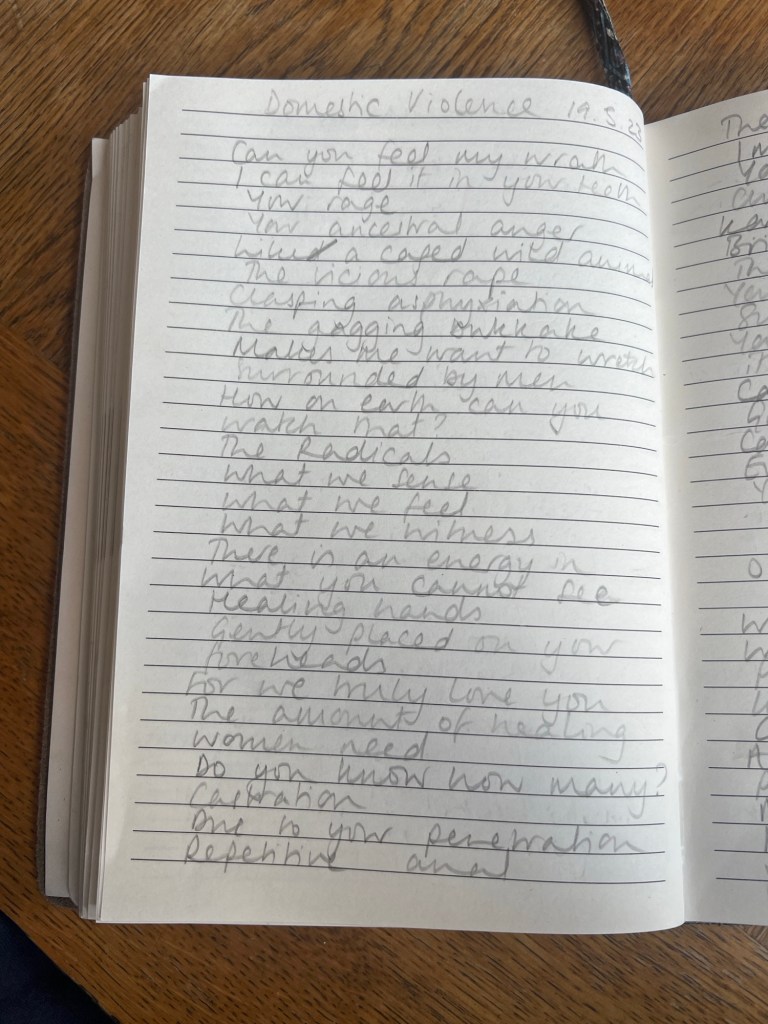 Domestic Violence 19.5.23
Can you feel my wrath
I can feel it in your teeth
Your rage
Your ancestral anger
Like a caged wild animal
The vicious rape
Clasping asphyxiation
The gagging bukkake
Makes me want to wretch
Surrounded by men
How on earth can you
watch that?
The Radicals
What we sense
What we feel
What we witness
There is an energy in
what you cannot see
Healing hands
Gently placed on your
foreheads
For we truly love you
The amount of healing
women need
Do you know how many?
Castration
Due to your penetration
Repetitive anal
The